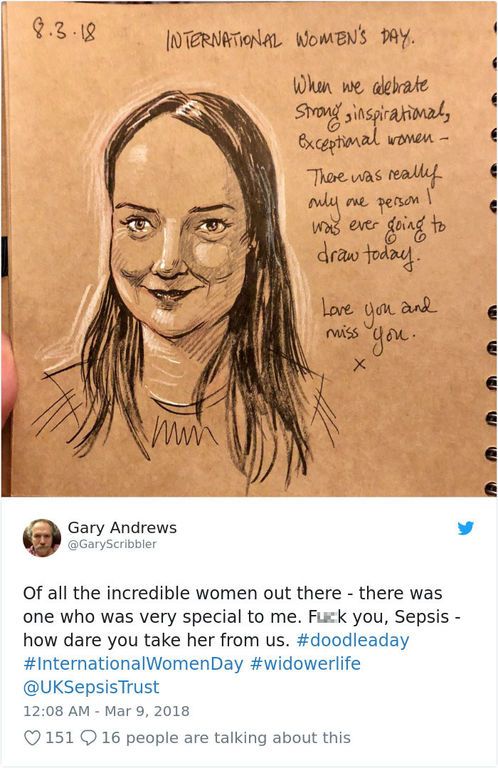 8.3.18
INTERNATIONAL WOMEN'S DAY.
When we celebrate
strong, inspirational,
exceptional women -
There was really
only one person I
was ever going to
draw today.
Love you and
miss you.
x
Gary Andrews
@GaryScribbler
Of all the incredible women out there - there was
one who was very special to me. F██k you, Sepsis -
how dare you take her from us. #doodleaday
#InternationalWomenDay #widowerlife
@UKSepsisTrust
12:08 AM - Mar 9, 2018
151 16 people are talking about this